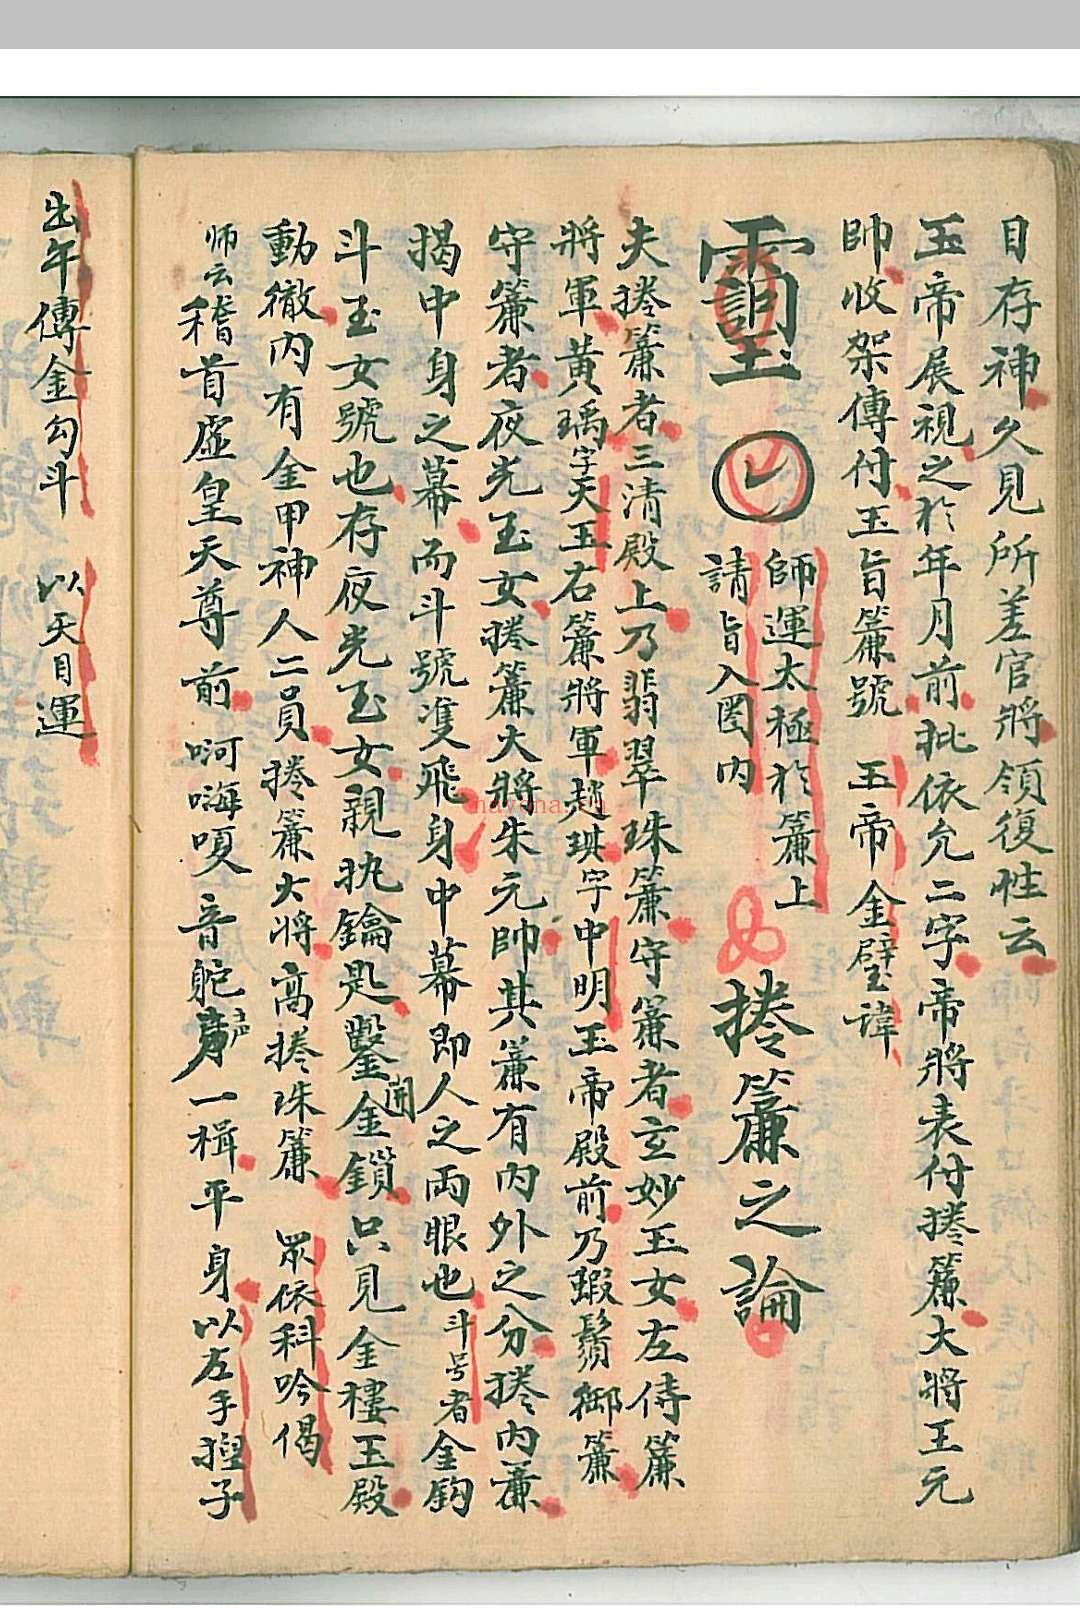 目存神久見所差官將領復性云
玉帝展視之於年月前批依允二字帝將表付捲簾大將王元
帥收架傳付玉旨簾號 玉帝金壁諱
師運太極於簾上
請旨入圈内
捲簾之論
夫捲簾者三清殿上乃翡翠珠簾守簾者玄妙玉女左侍簾
將軍黄瑀字天玉右簾將軍趙琪字中明玉帝殿前乃蝦鬚御簾
守簾者夜光玉女捲簾大將朱元帥其簾有内外之分捲内簾
揭中身之幕而斗號隻飛身中幕即人之両眼也斗号者金鈎
斗玉女號也存夜光玉女親执鑰匙鑿開金鎖只見金樓玉殿
動徹内有金甲神人二員捲簾大將高捲珠簾 眾依科吟偈
师云稽首虚皇天尊前 啊嗨嗄音舵声一楫平身以左手揑子
出午傳金勾斗 以天目運
nayona.cn